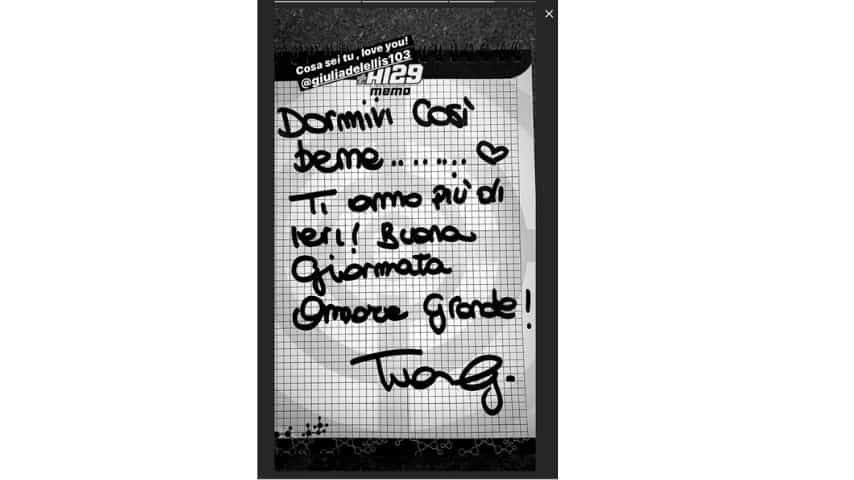 Cosa sei tu , love you!
@giuliadelellis103
AI29
memo
Dormivi Così
bene........
Ti amo più di
ieri! Buona
Giornata
Amore Grande!
Tua G.